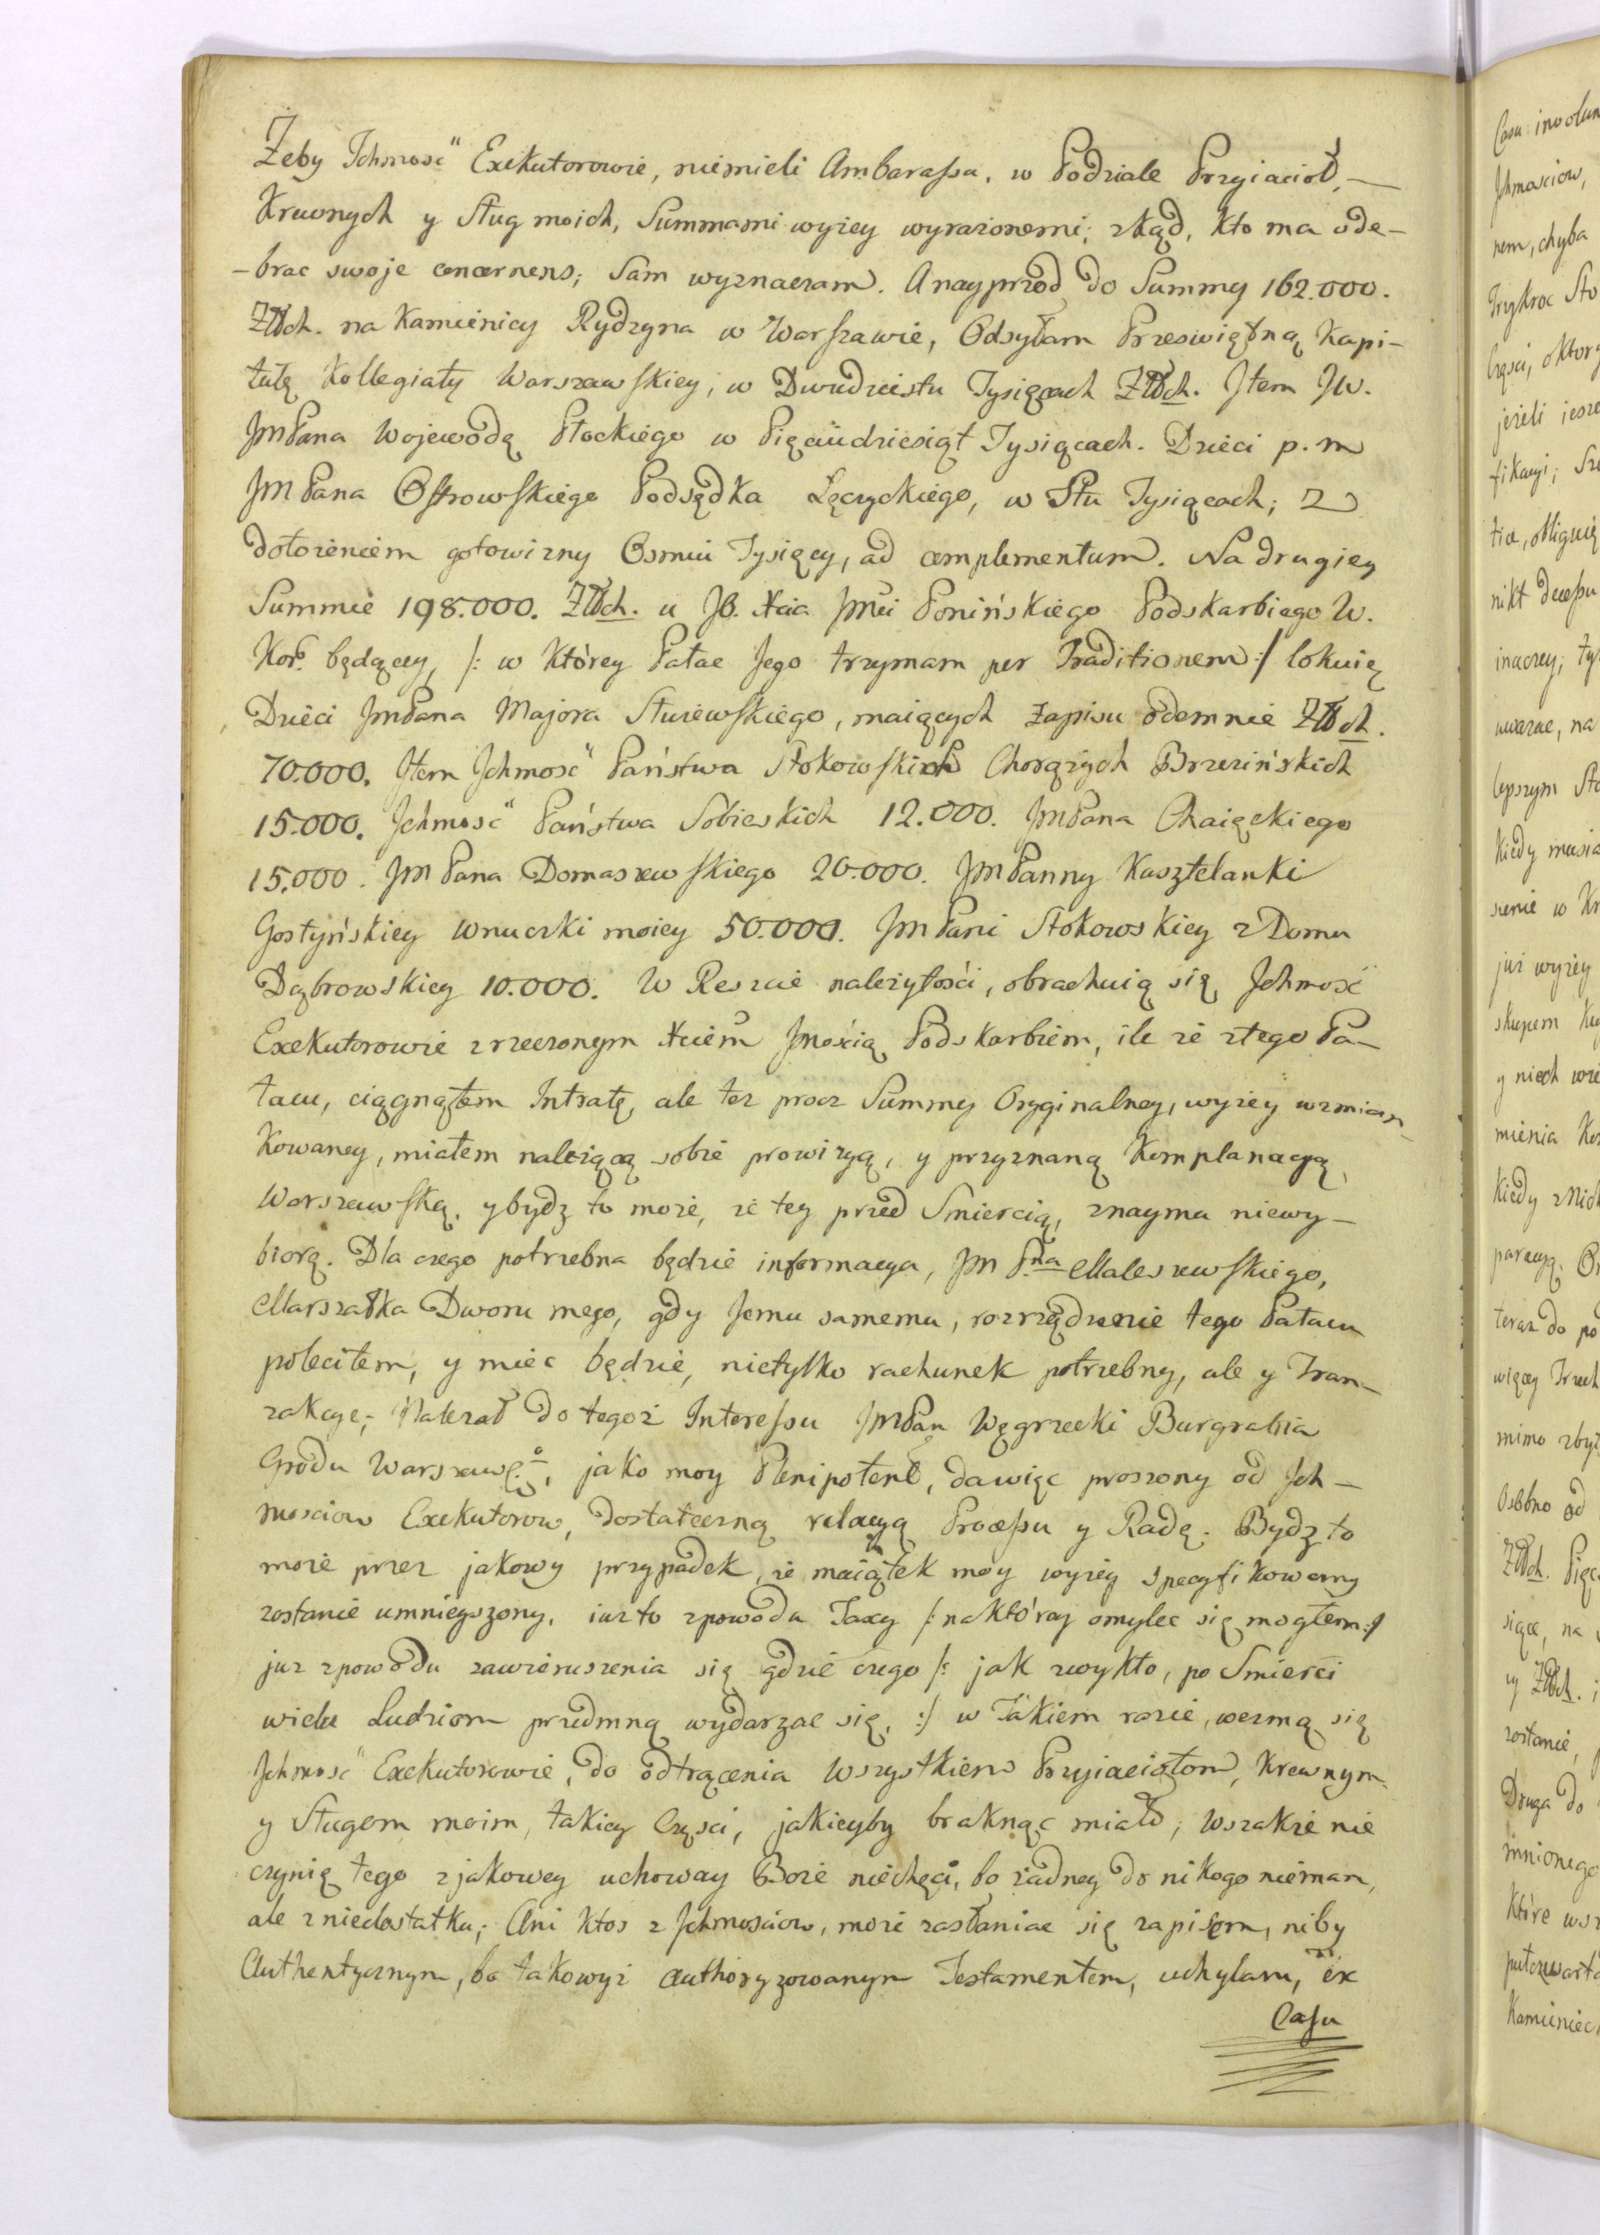 Żeby Ichmość Exekutorowie, niemieli Ambarassu, w Podziale Przyiaciół,—
Krewnych y Sług moich, Summami wyżey wyrażonemi; zkąd, kto ma ode-
-brac swoje concernens; Sam wyznaczam. A nayprzod do Summy 162.000.
Złłch. na Kamienicy Rydzyna w Warszawie, Odsyłam Przeswiętną Kapi-
tułę Kollegiaty Warszawskiey; w Dwudziestu Tysięcach Złłch. Item JW.
JmPana Wojewodę Płockiego w Pięciudziesiąt Tysiącach. Dzieci p. m
JmPana Ostrowskiego Podsędka Łęczyckiego, w Stu Tysiącach; z
dołożeniem gotowizny Osmiu Tysięcy, ad complementum. Na drugiey
Summie 198.000. Złłch. u JO. Xcia Jmci Ponińskiego Podskarbiego W.
Kor. będącey, /: w którey Pałac Jego trzymam per Traditionem :/ lokuię
Dzieci JmPana Majora Słuzewskiego, maiących zapisu odemnie Złłch.
70.000. Item Ichmość Państwa Stokowskich Chorążych Brzezińskich
15.000. Ichmość Państwa Sobieskich 12.000. JmPana Chaięckiego
15.000. JmPana Domaszewskiego 20.000. JmPanny Kasztelanki
Gostyńskiey Wnuczki moiey 50.000. JmPani Stokowskiey z Domu
Dąbrowskiey 10.000. W Reszcie należytości, obrachuią się Ichmość
Exekutorowie z rzeczonym Xciem Jmością Podskarbiem, ile że z tego Pa-
łacu, ciągnąłem Intratę, ale też procz Summy Oryginalney, wyżey wzmian-
kowaney, miałem należącą sobie prowizyą, y przyznaną Komplanacyą
Warszawską. y bydz to może, że tey przed Smiercią, znayma niewy-
biorę. Dla czego potrzebna będzie informacya, Jm Pna Maleszewskiego,
Marszałka Dworu mego, gdy Jemu samemu, rozrządzenie tego Pałacu
poleciłem, y miec będzie, nietylko rachunek potrzebny, ale y Tran-
zakcye; Należał do tegoż Interessu JmPan Węgrzecki Burgrabia
Grodu Warszawgo, jako moy Plenipotent, da więc proszony od Ich-
mosciow Exekutorow, dostateczną relacyą Processu y Radę. Bydz to
może przez jakowy przypadek, że maiątek moy wyżey specyfikowany
zostanie umnieyszony, iuz to z powodu Taxy /: na którey omylec się mogłem :/
juz z powodu zawieruszenia się gdzie czego /: jak zwykło, po Smierci
wielu Ludziom przedmną wydarzac się, :/ w Takiem razie, wezmą się
Ichmość Exekutorowie, do odtrącenia Wszystkiem Przyiaciołom, Krewnym
y Sługom moim, takiey Części, jakieyby braknąc miało; Wszakże nie
czynię tego z jakowey uchoway Boże niechęci, bo żadney do nikogo niemam,
ale z niedostatku; Ani ktos z Ichmosciow, może zasłaniac się zapisem, niby
Authentycznym, bo takowyż authoryzowanym Testamentem, uchylam, ex
Casu